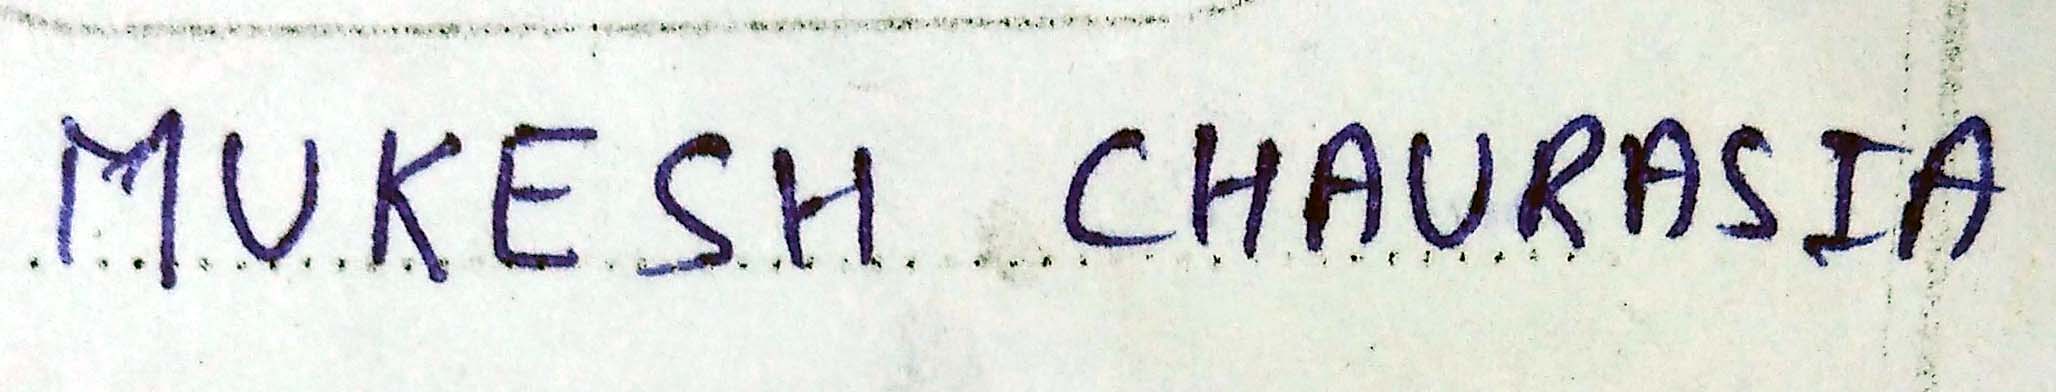 MUKESH CHAURASIA